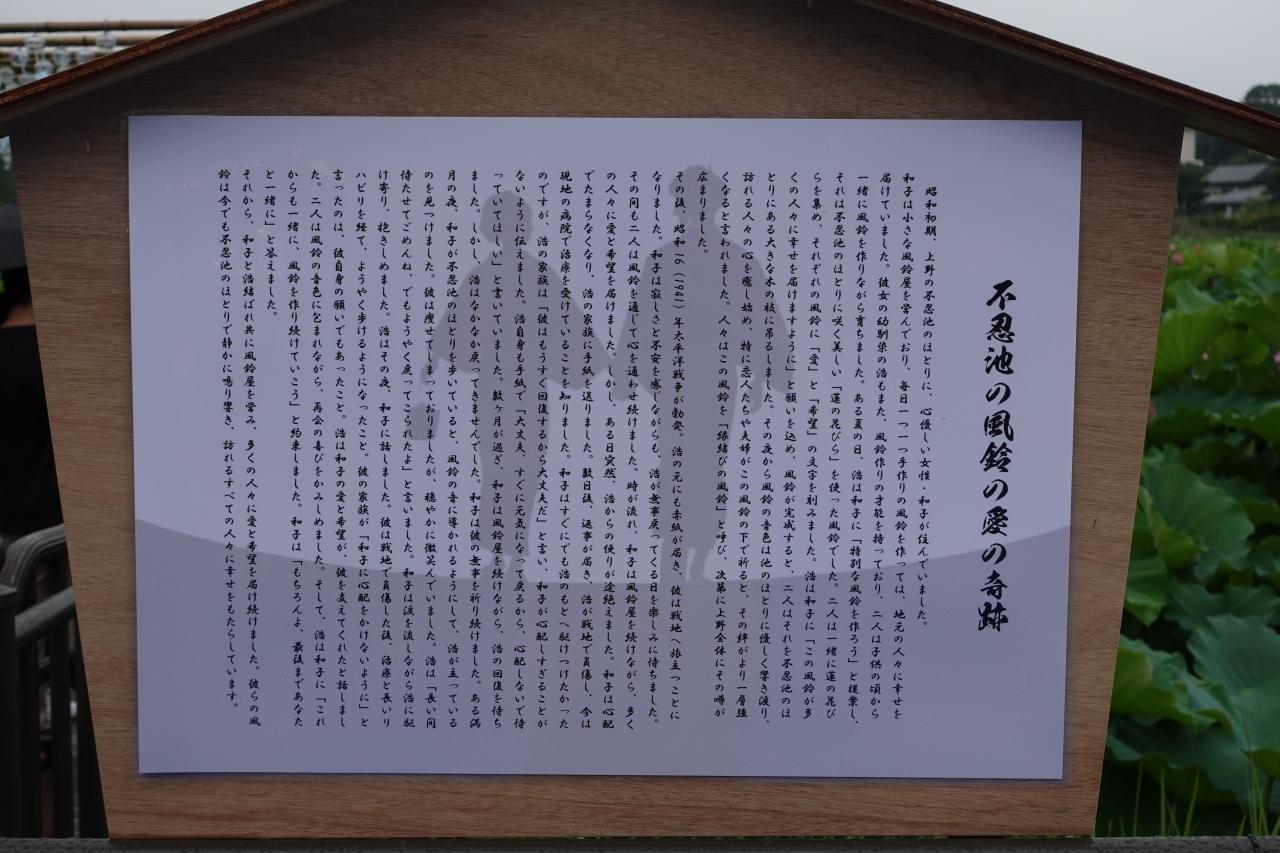 不忍池の風鈴の愛の奇跡
昭和初期、上野の不忍池のほとりに、心優しい女性、和子が住んでいました。
和子は小さな風鈴屋を営んでおり、毎日一つ一つ手作りの風鈴を作っては、地元の人々に幸せを
届けていました。彼女の幼馴染の浩もまた、風鈴作りの才能を持っており、二人は子供の頃から
一緒に風鈴を作りながら育ちました。ある夏の日、浩は和子に「特別な風鈴を作ろう」と提案し、
それは不忍池のほとりに咲く美しい「蓮の花びら」を使った風鈴でした。二人は一緒に蓮の花び
らを集め、それぞれの風鈴に「愛」と「希望」の文字を刻みました。浩は和子に「この風鈴が多
くの人々に幸せを届けますように」と願いを込め、風鈴が完成すると、二人はそれを不忍池のほ
とりにある大きな木の枝に吊るしました。その夜から風鈴の音色は池のほとりに優しく響き渡り、
訪れる人々の心を癒し始め、特に恋人たちや夫婦がこの風鈴の下で祈ると、その絆がより一層強
くなると言われました。人々はこの風鈴を「縁結びの風鈴」と呼び、次第に上野全体にその噂が
広まりました。
その後、昭和16（1941）年太平洋戦争が勃発。浩の元にも赤紙が届き、彼は戦地へ旅立つことに
なりました。和子は寂しさと不安を感じながらも、浩が無事戻ってくる日を楽しみに待ちました。
その間も二人は風鈴を通じて心を通わせ続けました。時が流れ、和子は風鈴屋を続けながら、多く
の人々に愛と希望を届けました。しかし、ある日突然、浩からの便りが途絶えました。和子は心配
でたまらなくなり、浩の家族に手紙を送りました。数日後、返事が届き、浩が戦地で負傷し、今は
現地の病院で治療を受けていることを知りました。和子はすぐにでも浩のもとへ駆けつけたかった
のですが、浩の家族は「彼はもうすぐ回復するから大丈夫だ」と言い、和子が心配しすぎることが
ないように伝えました。浩自身も手紙で「大丈夫、すぐに元気になって戻るから、心配しないで待
っていてほしい」と書いていました。数ヶ月が過ぎ、和子は風鈴屋を続けながら、浩の回復を待ち
ました。しかし、浩はなかなか戻ってきませんでした。和子は彼の無事を祈り続けました。ある満
月の夜、和子が不忍池のほとりを歩いていると、風鈴の音に導かれるようにして、浩が立っている
のを見つけました。彼は痩せてしまっておりましたが、穏やかに微笑んでいました。浩は「長い間
待たせてごめんね、でもようやく戻ってこられたよ」と言いました。和子は涙を流しながら浩に駆
け寄り、抱きしめました。浩はその夜、和子に話しました。彼は戦地で負傷した後、治療と長いリ
ハビリを経て、ようやく歩けるようになったこと。彼の家族が「和子に心配をかけないように」と
言ったのは、彼自身の願いでもあったこと。浩は和子の愛と希望が、彼を支えてくれたと話しまし
た。二人は風鈴の音色に包まれながら、再会の喜びをかみしめました。そして、浩は和子に「これ
からも一緒に、風鈴を作り続けていこう」と約束しました。和子は「もちろんよ、最後まであなた
と一緒に」と答えました。
それから、和子と浩結ばれ共に風鈴屋を営み、多くの人々に愛と希望を届け続けました。彼らの風
鈴は今でも不忍池のほとりで静かに鳴り響き、訪れるすべての人々に幸せをもたらしています。